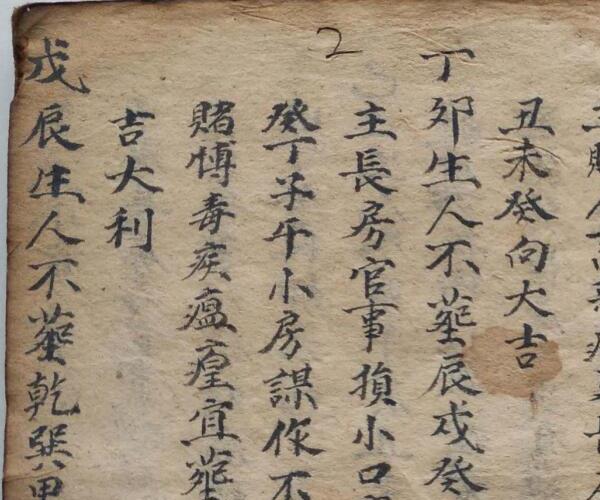 2
丑未癸向大吉
丁卯生人不塟辰戌癸
主長房官事損小口
癸丁子午小房謀作不
賭博毒疾瘟瘟宜塟
吉大利
戊辰生人不塟乾巽